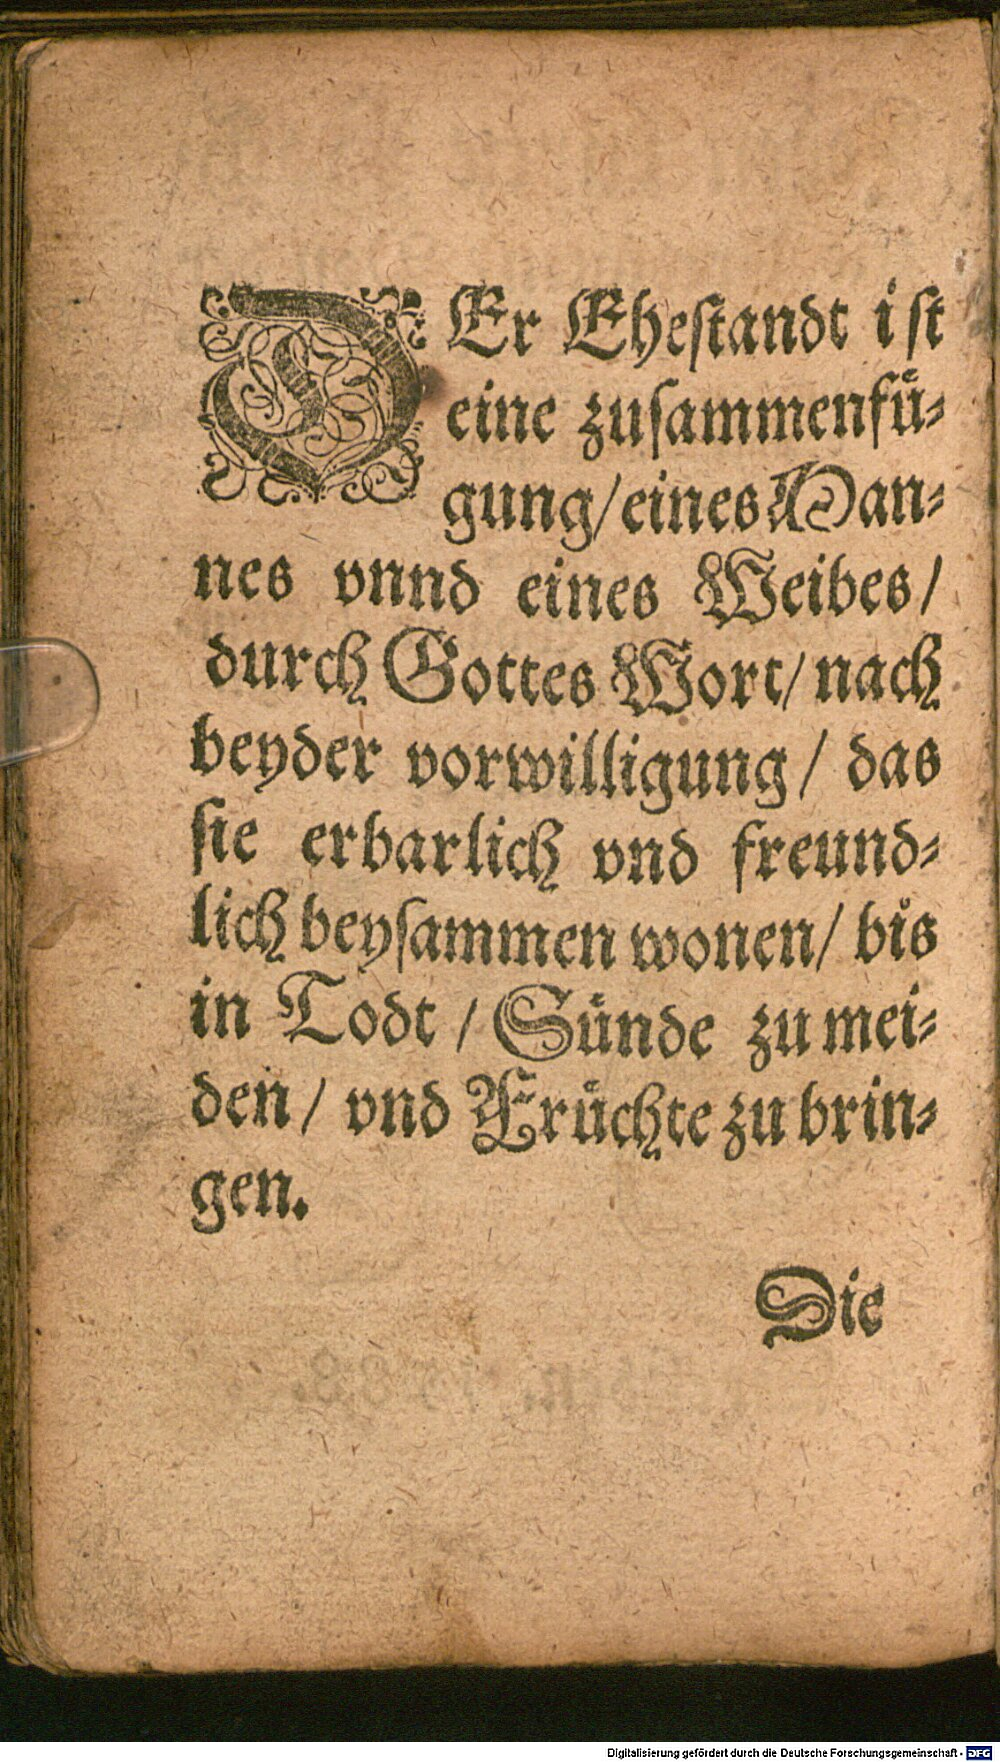 DEr Eheſtandt iſt
eine zuſammenfuͤ-
gung/ eines Man-
nes vnnd eines Weibes/
durch Gottes Wort/ nach
beyder vorwilligung/ das
ſie erbarlich vnd freund-
lich beyſammen wonen/ bis
in Todt/ Suͤnde zu mei-
den/ vnd Fruͤchte zu brin-
gen.
Die
Digitalisierung gefördert durch die Deutsche Forschungsgemeinschaft - DFG